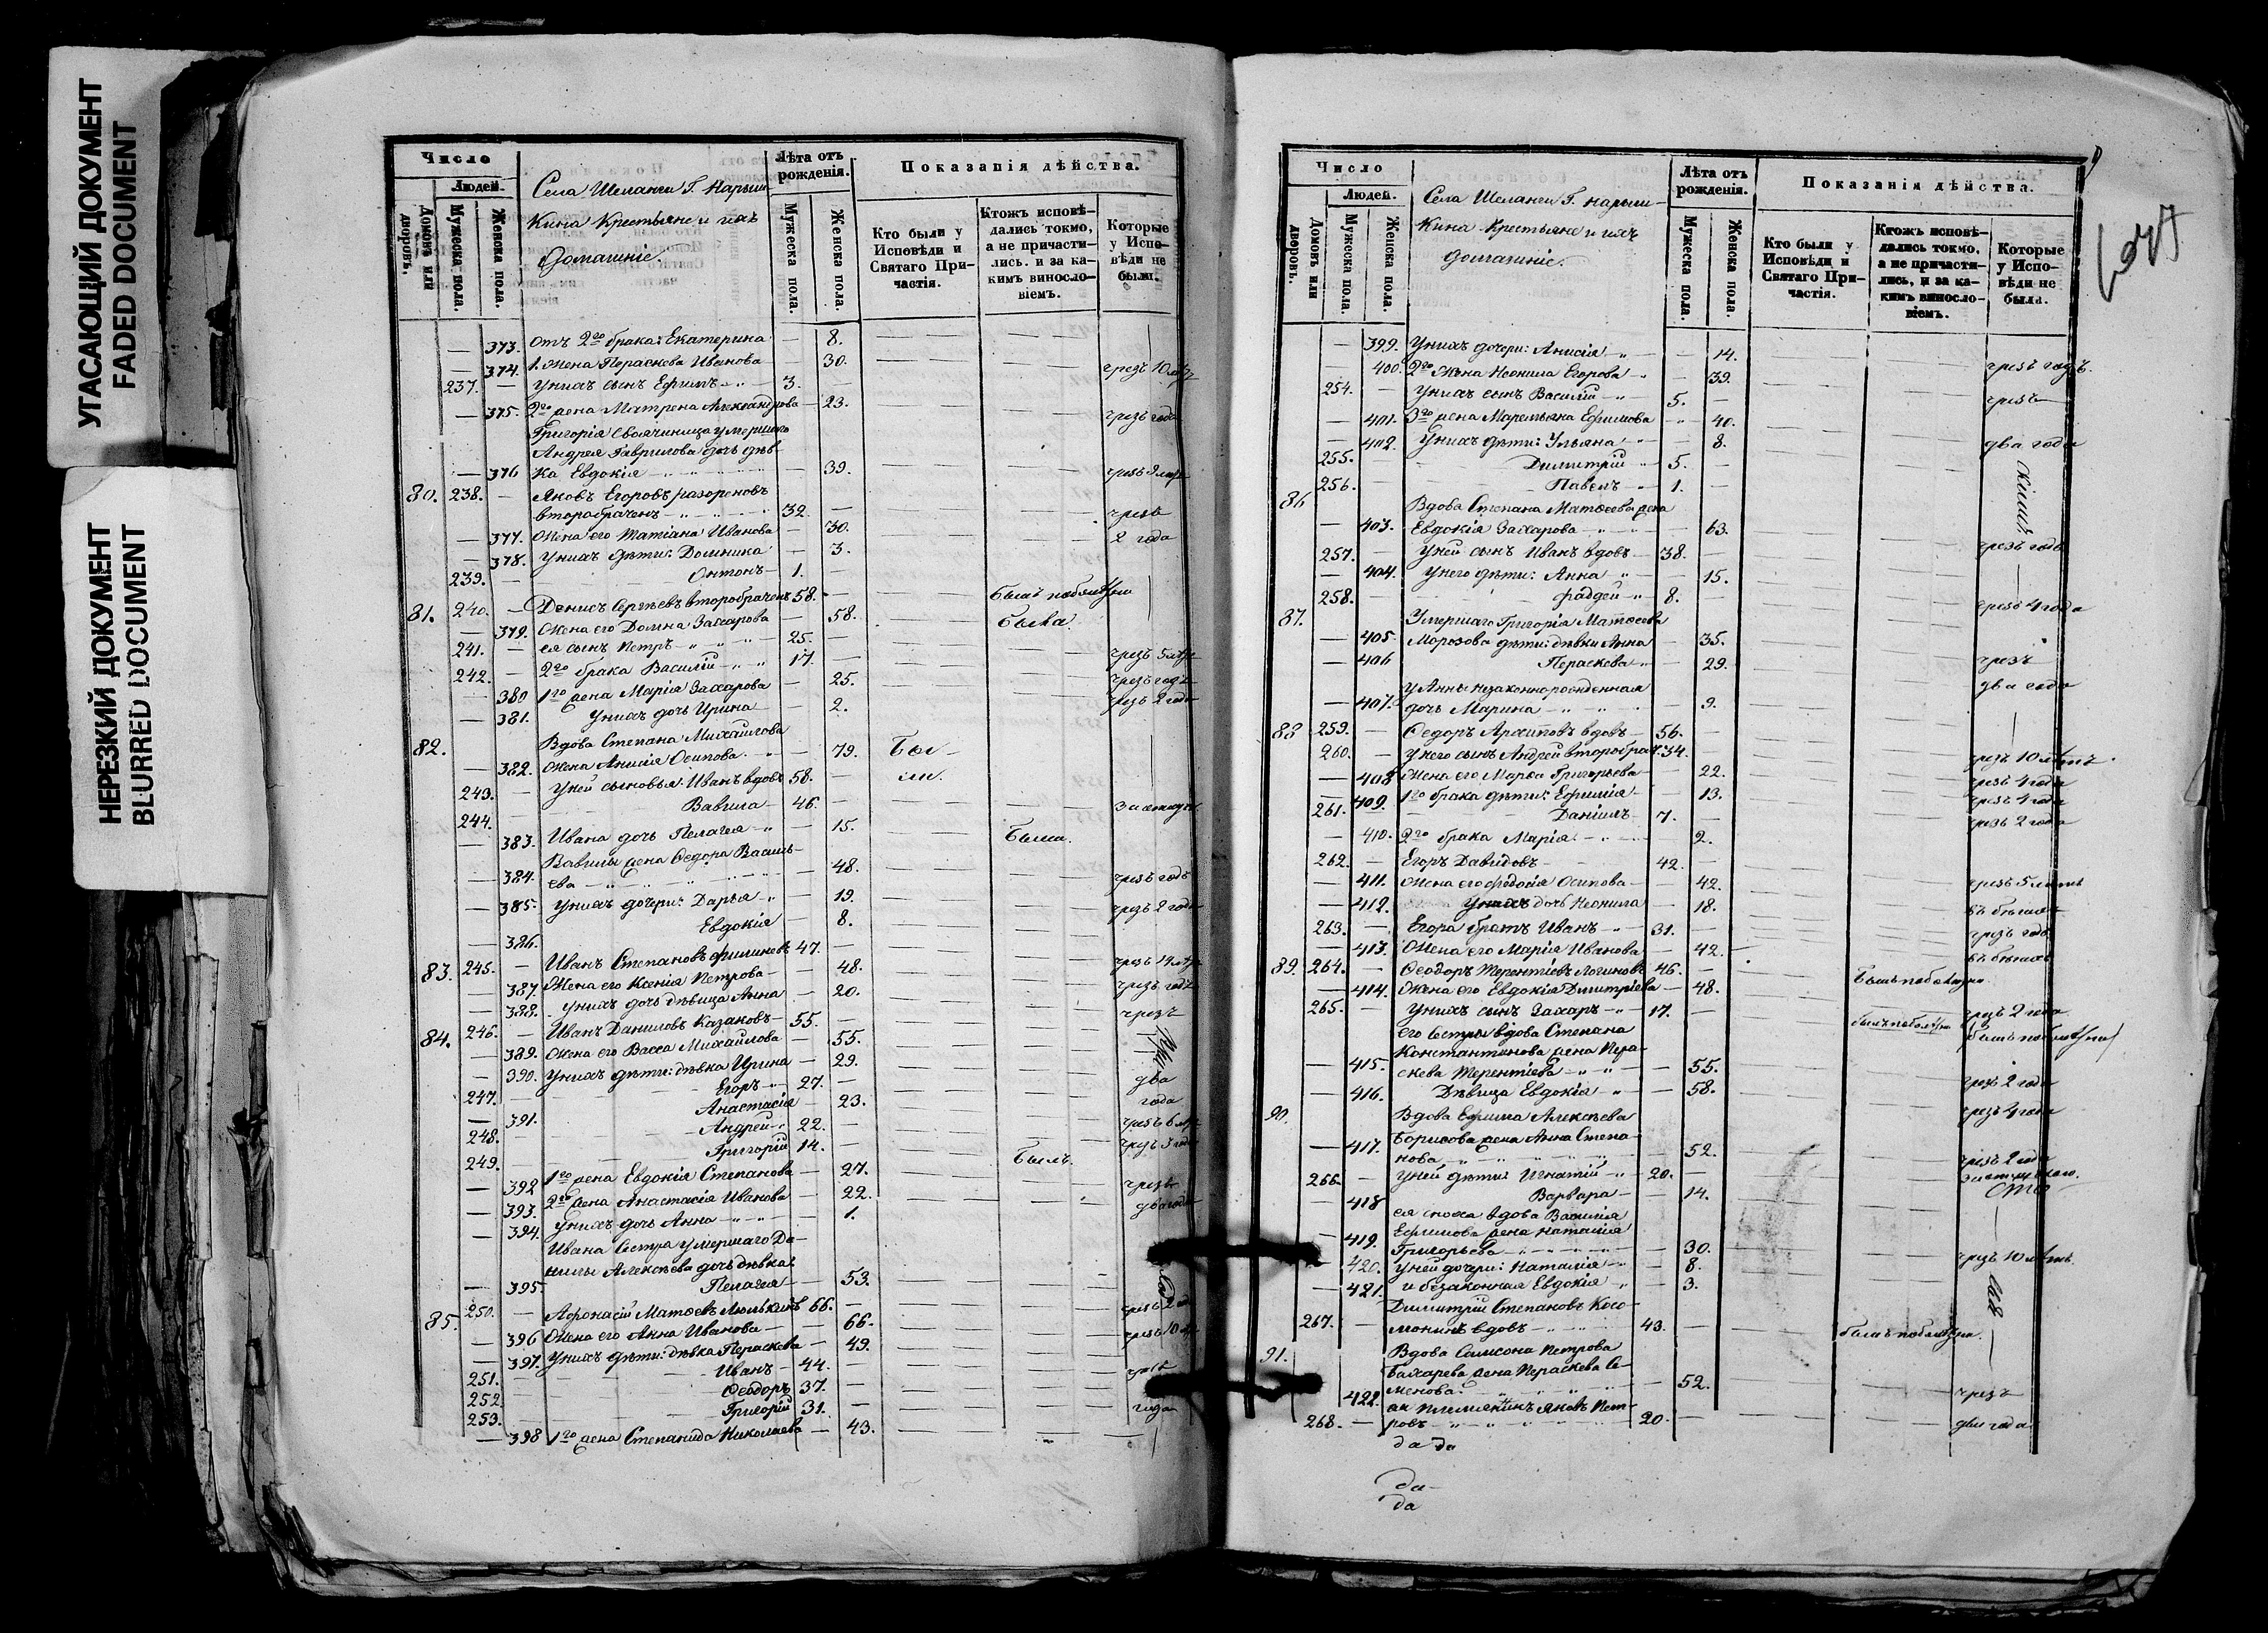 УГАСАЮЩИЙ ДОКУМЕНТ
FADED DOCUMENT
НЕРЕЗКИЙ ДОКУМЕНТ
BLURRED DOCUMENT
Число
Людей.
Домовъ или дворовъ.
Мужеска пола.
Женска пола.
Села Шеланги Г. Нарыш-
кина Крестьяне и ихъ
Домашніе.
Лѣта отъ рожденія.
Мужеска пола.
Женска пола.
Показанія дѣйства.
Кто были у Исповѣди и Святаго Причастія.
Ктожъ исповѣдались токмо, а не причастились. и за какимъ винословіемъ.
Которые у Исповѣди не были.
— 373. отъ 2го брака: Екатерина — 8.
— 374. 1. Жена Параскева Иванова 30. чрезъ 10 лѣтъ
237. — У нихъ сынъ Ефимъ 3. —
— 375. 2го жена Матрена Александрова — 23. чрезъ года
Григорія Своячиница умершаго
Андрея Гаврилова дочь дѣв-
— 376 ка Евдокія — 39.
80. 238. — Яковъ Егоровъ
второбраченъ 32. — чрезъ
— 377. Жена его Татіана Иванова — 30. 2 года
— 378. У нихъ дѣти: Домника — 3.
239. — Онтонъ — 1. —
81. 240. — Денисъ Сергѣевъ второбраченъ 58. —
— 379. Жена его Домна Захарова — 58. была.
241. — ея сынъ Петръ 25. —
242. — 2го брака Василій 17. — чрезъ 5 лѣтъ
380 1го жена Марія Захарова — 25. чрезъ годъ
— 381. У нихъ дочь Ирина — 2. чрезъ 2 года
82. Вдова Степана Михайлова
— 382. жена Анисія Осипова — 79. Бы-
243. — У ней сыновья: Иванъ вдовъ 58. — ли.
244. Вавила — 46. —
— 383. Ивана дочь Пелагея — 15. была.
Вавилы жена Ѳедора Василь-
— 384. ева — 48. чрезъ годъ
— 385. У нихъ дочери: Дарья — 19. чрезъ 2 года
— 386. Евдокія — 8.
83. 245. — Иванъ Степановъ 47. —
— 387. Жена его Ксенія Петрова — 48. чрезъ годъ
— 388. У нихъ дочь дѣвица Анна — 20. чрезъ
84. 246. — Иванъ Даниловъ Казаковъ — 55. —
— 389. Жена его Васса Михайлова — 55.
— 390. У нихъ дѣти: дѣвка Ирина — 29.
247. — Егоръ 27. — два
— 391. Анастасія — 23. года
248. — Андрей 22. — чрезъ 6 лѣтъ
249. — Григорій 14. — чрезъ 3 года
— 392 1го жена Евдокія Степанова — 27. былъ.
— 393. 2го жена Анастасія Иванова — 22. чрезъ
— 394. У нихъ дочь Анна — 1. два года
Ивана Сестра умершаго Да-
нилы Алексѣева дочь дѣвка
— 395. Пелагея — 53.
85. 250. — Афонасій Матѳеевъ Люлькинъ 66. — чрезъ 2 года
— 396 Жена его Анна Иванова — 66. чрезъ 10 лѣтъ
— 397. У нихъ дѣти: дѣвка Параскева — 49.
251. — Иванъ — 44. —
252 Ѳеодоръ 37. —
253. — Григорій 31. — года
— 398 1го жена Степанида Николаева — 43.
Число
Людей.
Домовъ или дворовъ.
Мужеска пола.
Женска пола.
Села Шеланги Г. Нарыш-
кина Крестьяне и ихъ
домашніе.
Лѣта отъ рожденія.
Мужеска пола.
Женска пола.
Показанія дѣйства.
Кто были у Исповѣди и Святаго Причастія.
Ктожъ исповѣдались токмо, а не причастились, и за какимъ винословіемъ.
Которые у Исповѣди не были.
— 399. У нихъ дочери: Анисія — 14.
400. 2го Жена Неонила Егорова — 39. чрезъ годъ.
254. — У нихъ сынъ Василій 5. —
— 401. 3го жена Маремьяна Ефимова — 40. чрезъ
— 402. У нихъ дѣти: Ульяна — 8. два года
255. Димитрій 5. —
256. — Павелъ 1. —
86 Вдова Степана Матѳеева жена
— 403. Евдокія Захарова — 63.
257. — У ней сынъ Иванъ вдовъ 38. — чрезъ годъ
— 404. У него дѣти: Анна — 15.
258. — Фадѣй 8. —
87. Умершаго Григорія Матѳеева чрезъ 4 года
— 405. Морозова дѣти: дѣвки Анна — 35.
— 406 Параскева — 29. чрезъ
У Анны незаконнорожденная два года
— 407. дочь Марина — 9.
88 259. — Ѳедоръ Архиповъ вдовъ — 56. —
260. — У него сынъ Андрей второбрач. 34. чрезъ 10 лѣтъ.
— 408 Жена его Марья Григорьева — 22. чрезъ 4 года
— 409. 1го брака дѣти: Ефимія — 13. чрезъ 4 года
261. Даніилъ 7. — чрезъ 2 года
— 410. 2го брака Марія — 2.
262. — Егоръ Давидовъ — 42. —
— 411. Жена его Федосія Осипова — 42. чрезъ 5 лѣтъ
— 412. У нихъ дочь Неонила — 18. въ бѣгахъ
263. — Егора братъ Иванъ 31. — чрезъ годъ
— 413. Жена его Марія Иванова — 42. въ бѣгахъ
89. 264. — Ѳеодоръ Терентіевъ Логиновъ 46. —
— 414. Жена его Евдокія Димитріева — 48.
265. — У нихъ сынъ Захаръ 17. — чрезъ 2 года
его Сестры вдова Степана
Константинова жена Пера-
— 415. скева Терентіева — 55.
— 416. Дѣвица Евдокія — 58. чрезъ 2 года
90. Вдова Ефима Алексѣева чрезъ 4 года
Борисова жена Анна Степа-
— 417. нова — 52. чрезъ 2 года
266. — У ней дѣти: Игнатій 20. —
— 418 Варвара — 14.
ея сноха вдова Василія
Ефимова жена Наталія
— 419. Григорьева — 30. чрезъ 10 лѣтъ.
420. У ней дочери: Наталія — 8.
— 421. и безаконная Евдокія — 3.
Димитрій Степановъ Косо-
267. — вдовъ 43. —
91. Вдова Самсона Петрова
Бахарева жена Параскева Се-
422. менова — 52. чрезъ
ея племянникъ Яковъ Пет-
268. — ровъ 20. — два года
да да
да
да